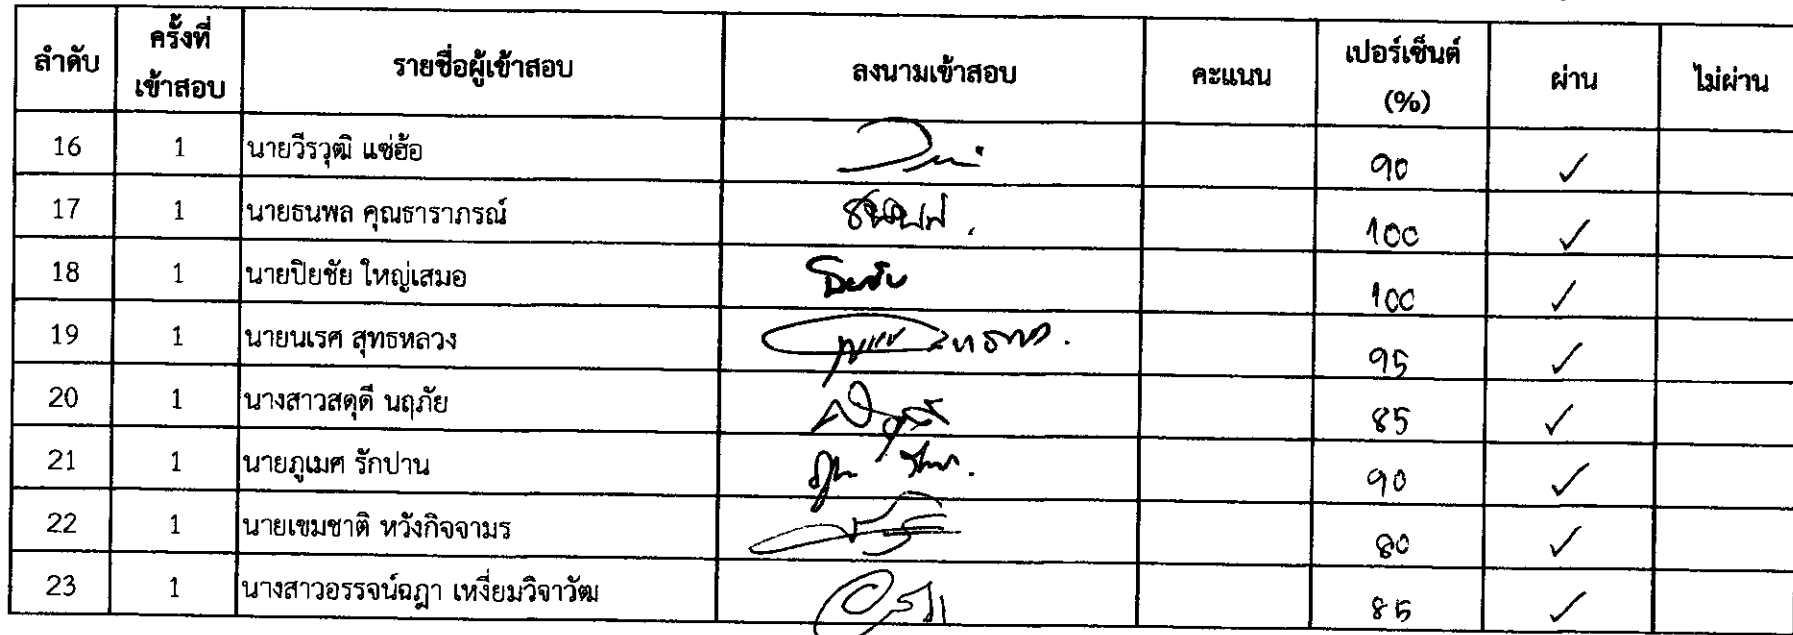 ลำดับ ครั้งที่เข้าสอบ รายชื่อผู้เข้าสอบ ลงนามเข้าสอบ คะแนน เปอร์เซ็นต์ (%) ผ่าน ไม่ผ่าน
16 1 นายวีรวุฒิ แซ่ฮ้อ 90 ✓
17 1 นายธนพล คุณธาราภรณ์ ธนพล 100 ✓
18 1 นายปิยชัย ใหญ่เสมอ 100 ✓
19 1 นายนเรศ สุทธหลวง 95 ✓
20 1 นางสาวสตุดี นฤภัย 85 ✓
21 1 นายภูเมศ รักปาน 90 ✓
22 1 นายเขมชาติ หวังกิจจามร 80 ✓
23 1 นางสาวอรรจน์ฉฎา เหงี่ยมวิจาวัฒ 85 ✓